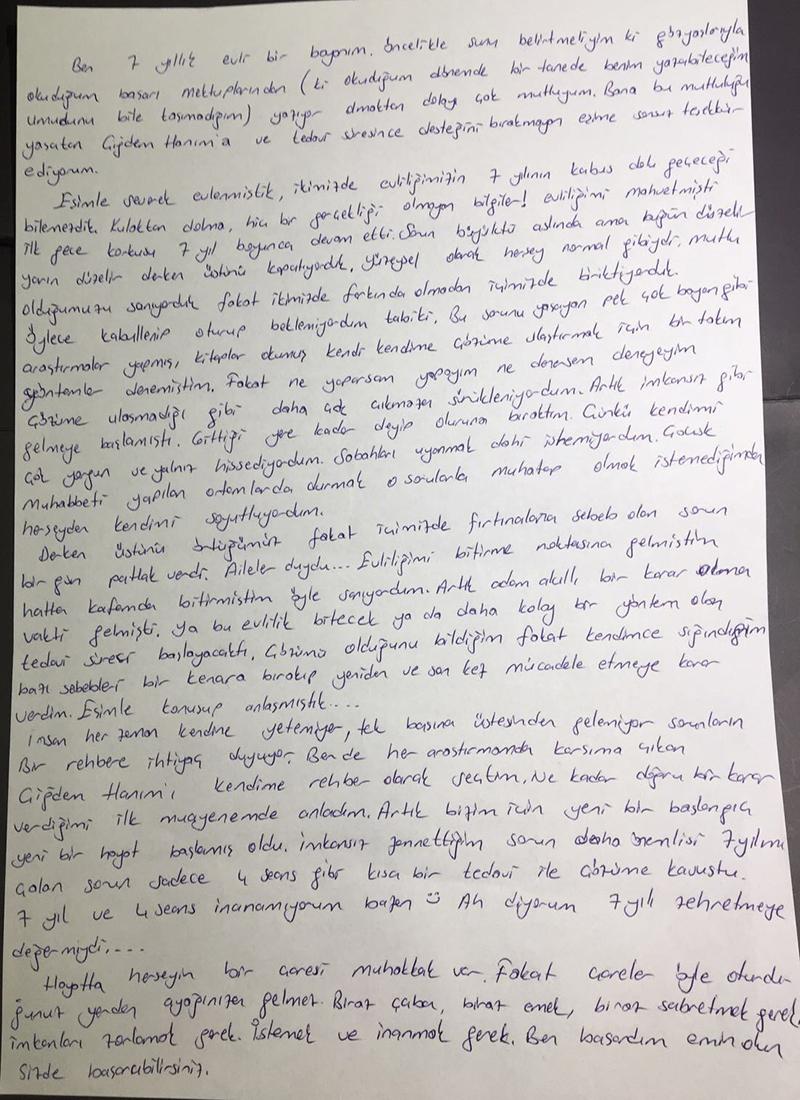 Ben 7 yıllık evli bir bayanım. Öncelikle şunu belirtmeliyim ki gözyaşlarıyla
okuduğum başarı mektuplarından (ki okuduğum dönemde bir tanede benim yazabileceğim
umudunu bile taşımadığım) yazıyor olmaktan dolayı çok mutluyum. Bana bu mutluluğu
yaşatan Çiğdem Hanım'a ve tedavi süresince desteğini bırakmayan eşime sonsuz teşekkür
ediyorum.
Eşimle severek evlenmiştik, ikimizde evliliğimizin 7 yılının kabus dolu geçeceği
bilemezdik. Kulaktan dolma, hiç bir gerçekliği olmayan bilgiler! evliliğimi mahvetmişti
ilk gece korkusu 7 yıl boyunca devam etti. Sorun büyüktü aslında ama bugün düzelir
yarın düzelir derken üstünü kapatıyorduk. Yüzeysel olarak herşey normal gibiydi, mutlu
olduğumuzu sanıyorduk fakat ikimizde farkında olmadan içimizde biriktiyorduk.
Öylece kabullenip oturup beklemiyordum tabiki. Bu sorunu yaşayan pek çok bayan gibi
araştırmalar yapmış, kitaplar okumuş kendi kendime çözüme ulaştırmak için bir takım
yöntemler denemiştim. Fakat ne yaparsam yapayım ne denersem deneyeyim
çözüme ulaşmadığı gibi daha çok çıkmaza sürükleniyordum. Artık imkansız gibi
gelmeye başlamıştı. Gittiği yere kadar deyip oluruna bıraktım. Çünkü kendimi
çok yorgun ve yalnız hissediyordum. Sabahları uyanmak dahi istemiyordum. Çocuk
muhabbeti yapılan ortamlarda durmak o sorularla muhatap olmak istemediğimden
herşeyden kendimi soyutluyordum.
Derken üstünü örttüğümüz fakat içimizde fırtınalara sebeb olan sorun
bir gün patlak verdi. Aileler duydu... Evliliğimi bitirme noktasına gelmiştim
hatta kafamda bitirmiştim öyle sanıyordum. Artık adam akıllı bir karar alma
vakti gelmişti. Ya bu evlilik bitecek ya da daha kolay bir yöntem olan
tedavi süreci başlayacaktı. Çözümü olduğunu bildiğim fakat kendimce sığındığım
bazı sebebleri bir kenara bırakıp yeniden ve son kez mücadele etmeye karar
verdim. Eşimle konuşup anlaşmıştık....
insan her zaman kendine yetemiyor, tek başına üstesinden gelemiyor sorunların
Bir rehbere ihtiyaç duyuyor. Bende her araştırmamda karşıma çıkan
Çiğdem Hanım'ı kendime rehber olarak seçtim. Ne kadar doğru bir karar
verdiğimi ilk muayenemde anladım. Artık bizim için yeni bir başlangıç
yeni bir hayat başlamış oldu. imkansız zannettiğim sorun daha önemlisi 7 yılımı
çalan sorun sadece 4 seans gibi kısa bir tedavi ile çözüme kavuştu.
7 yıl ve 4 seans inanamıyorum bazen ☺ Ah diyorum 7 yılı zehretmeye
değermiydi....
Hayatta herşeyin bir çaresi muhakkak var. Fakat çareler öyle oturdu-
ğunuz yerden ayağınıza gelmez. Biraz çaba, biraz emek, biraz sabretmek gerek,
imkanları zorlamak gerek. İstemek ve inanmak gerek. Ben başardım emin olun
Sizde başarabilirsiniz.